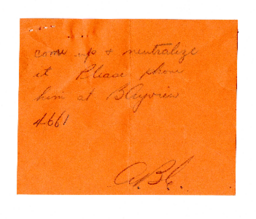 came up & neutralize
it Please phone
him at
4661